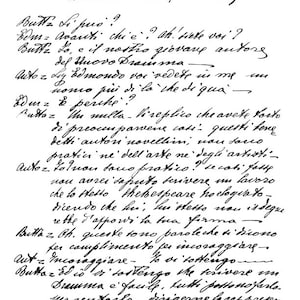 Butt= Si può?
Edm= Avanti chi è? Ah. siete voi?
Butt= Io, e il nostro giovane autore
del Nuovo Dramma —
Auto= Sig. Edmondo voi vedete in me un
uomo più di là che di qua —
Edm= E perchè?
Butt= Un nulla — Vi replico che avete torto
di preoccuparvene così. questi
detti autori novellini, non sono
pratici nè dell'arte nè degli artisti —
Auto= Io non sono pratico? se così fosse
non avrei saputo scrivere un lavoro
che lo stesso Shakespeare
dicendo che lui, lui stesso non
d'apporvi la sua firma —
Butt= Ah, queste sono parole che si dicono
per complimento per incoraggiare —
Aut= Incoraggiare — Io vi sostengo —
Butt= Ed io vi sostengo che scrivere un
Dramma è facile, tutti possono farlo